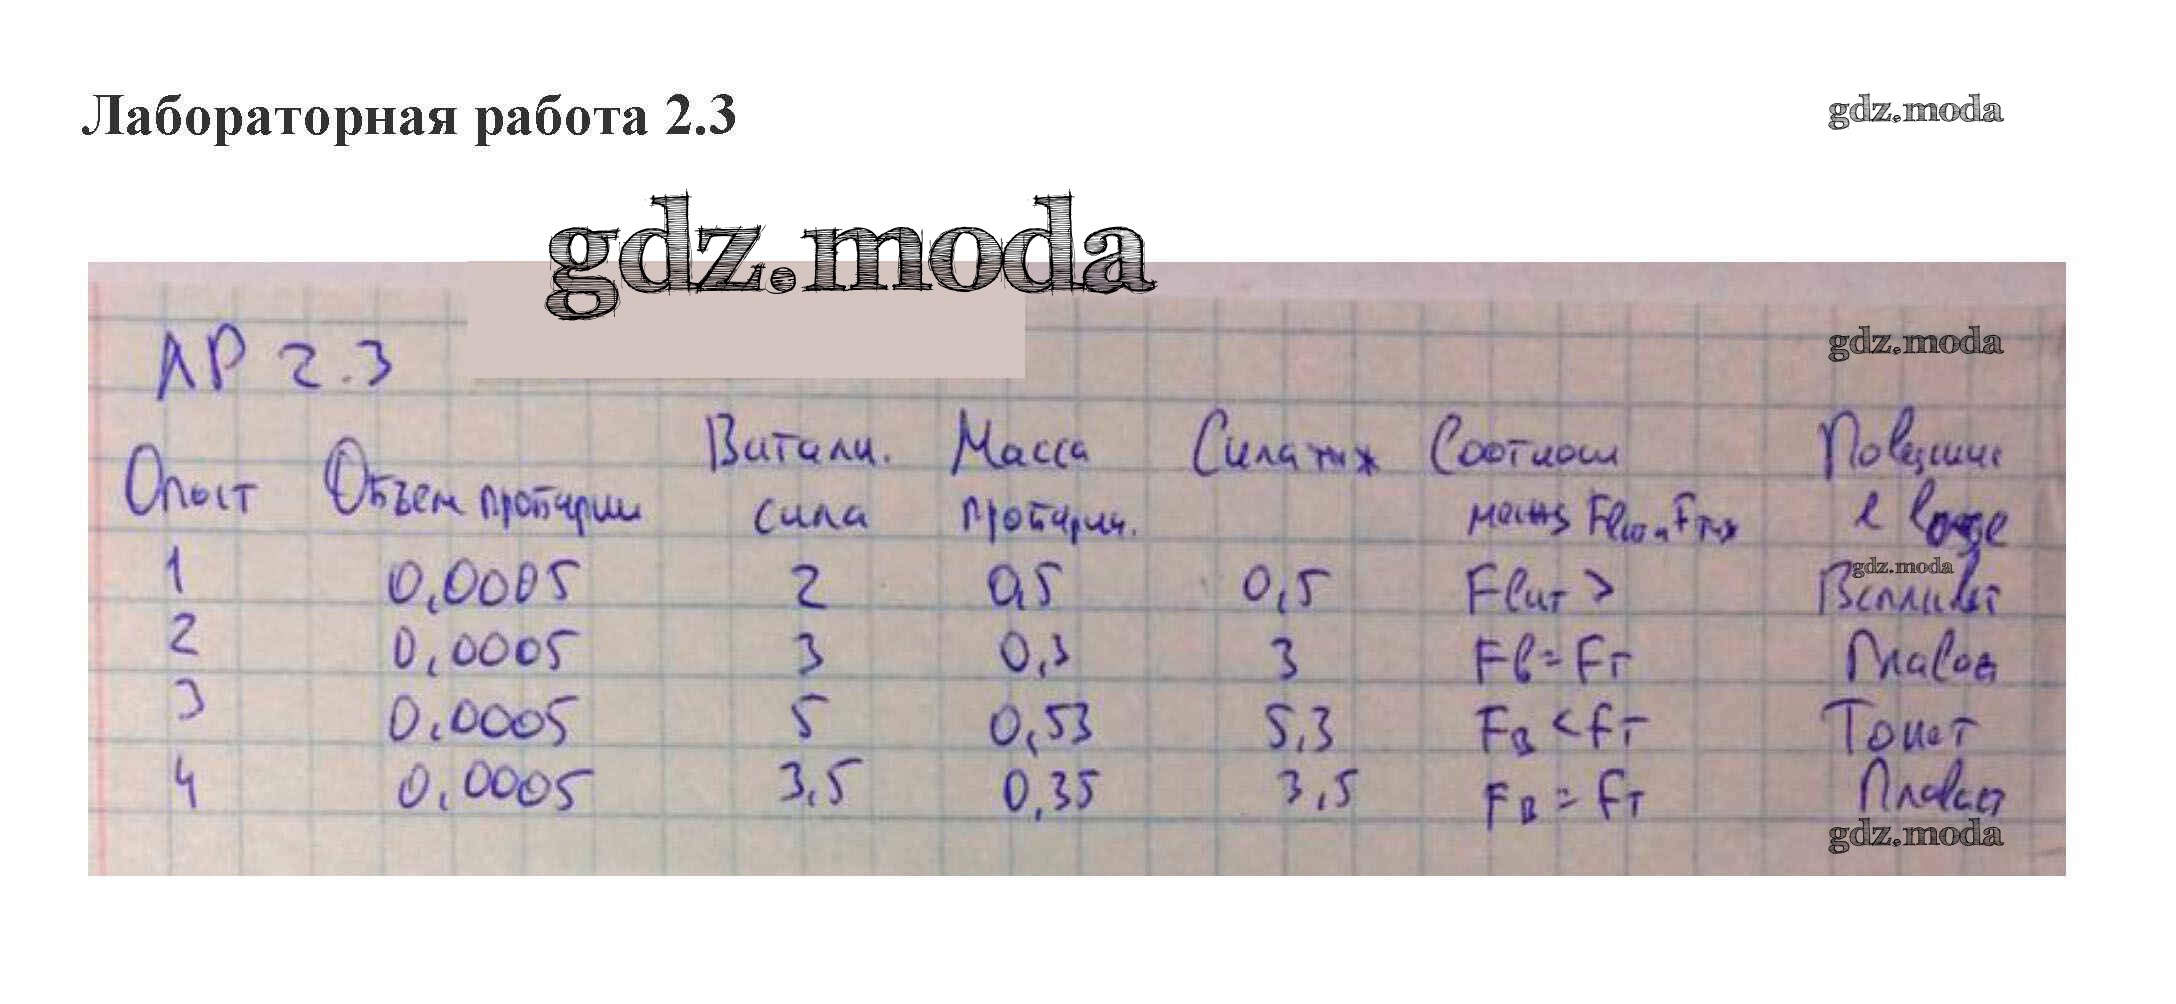 Лабораторная работа 2.3
gdz.moda
gdz.moda
ЛР 2.3
gdz.moda
Опыт Объем пробирки Витали. сила Масса пробирки. Сила тяж Соотнош Fт
gdz.moda
1 0,0005 2 0,5 0,5 Fвыт > Всплывёт
2 0,0005 3 0,3 3 Fв = Fт Плавает
3 0,0005 5 0,53 5,3 Fв < Fт Тонет
4 0,0005 3,5 0,35 3,5 Fв = Fт Плавает
gdz.moda